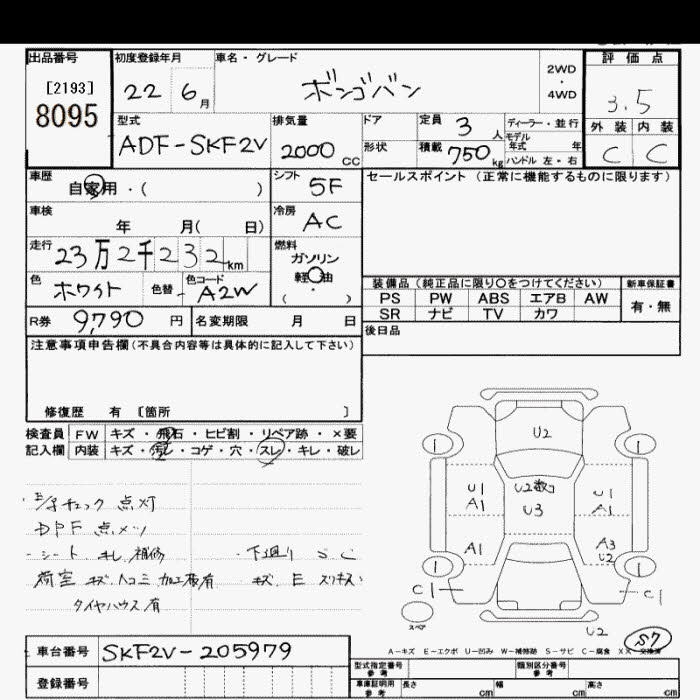 出品番号 初度登録年月 車名・グレード 評価点
[2193] 8095 22 6月 ボンゴバン 2WD・4WD 3.5
型式 排気量 ドア 定員 3人 ディーラー・並行 外装 内装
ADF-SKF2V 2000cc 形状 積載 750kg モデル年式 年 ハンドル 左・右 C C
車歴 自家用・( ) シフト 5F セールスポイント (正常に機能するものに限ります)
車検 年 月( 日) 冷房 AC
走行 23万2千232km 燃料 ガソリン 軽油 ・ ( )
色 ホワイト 色替 色コード A2W 装備品 (純正品に限り○をつけてください) 新車保証書
PS PW ABS エアB AW 有・無
SR ナビ TV カワ
R券 9,790円 名変期限 月 日 後日品
注意事項申告欄(不具合内容等は具体的に記入して下さい)
修復歴 有 [箇所 ]
検査員 FW キズ・飛石・ヒビ割・リペア跡・×要
記入欄 内装 キズ・汚レ・コゲ・穴・スレ・キレ・破レ
チェック 点灯
DPF 点メツ
シート キレ 補修 ・下廻り S C
荷室 キズ 凹コミ 加工痕有 キズ E
タイヤハウス有
U2
1 1
U1 A1 U2数コ U3 U1 A1
A1 A3 U2
1 1
C1 C1
スペア
U2 S7
A-キズ E-エクボ U-凹み W-補修跡 S-サビ C-腐食 XX-交換済
車台番号 SKF2V-205979
登録番号
型式指定番号 参考 類別区分番号 参考
車庫証明用 参考 長さ cm 幅 cm 高さ cm